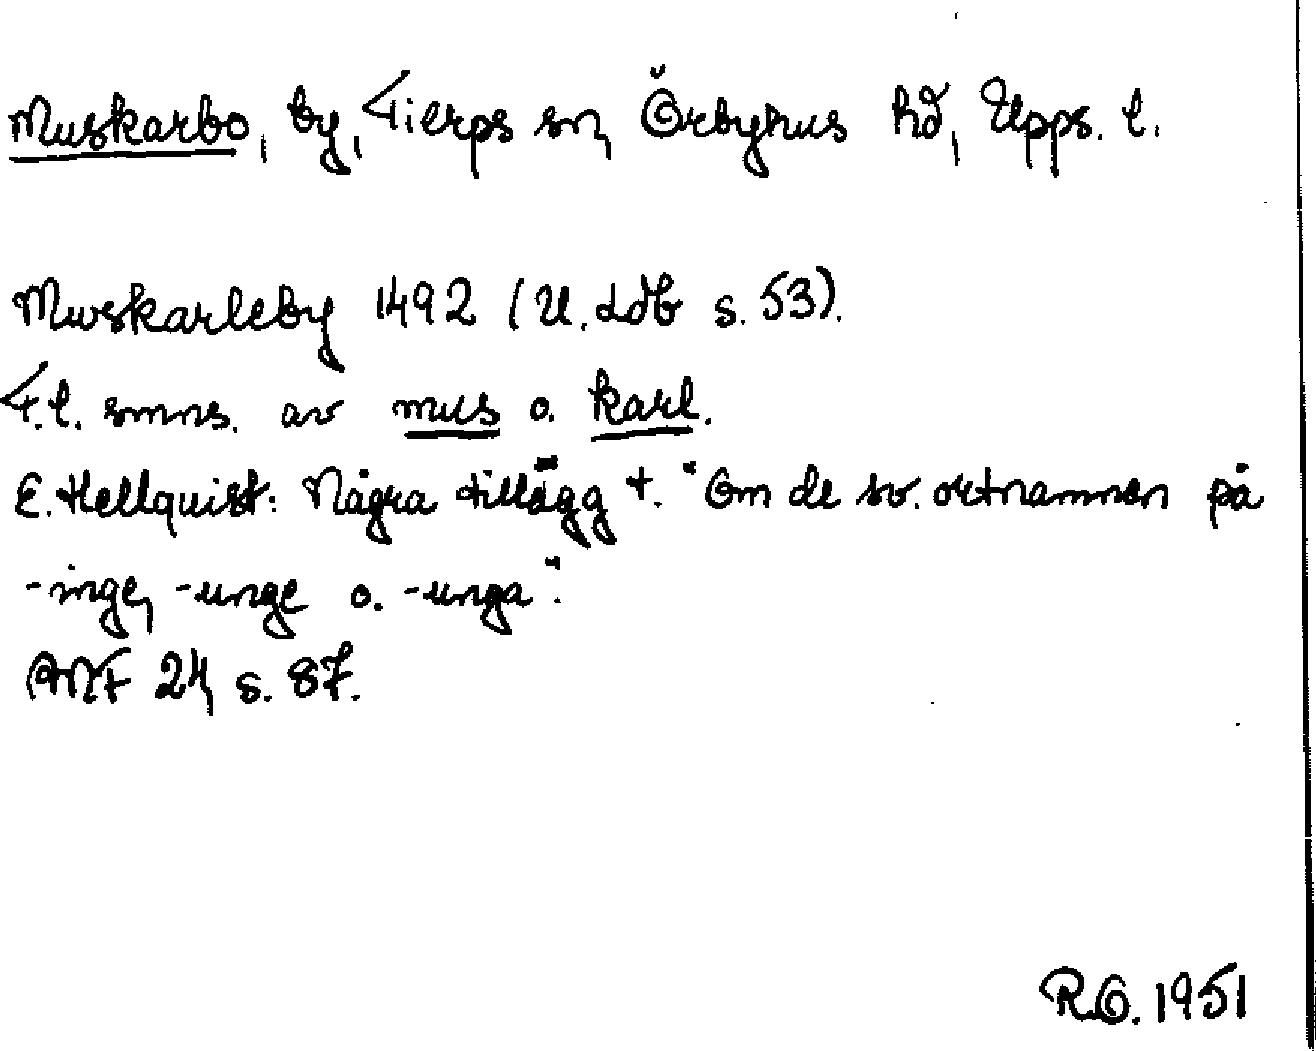 Muskarbo, by, Tierps sn, Örbyhus hd, Upps. l.
Muskarleby 1492 (U. Ldb s. 53).
F.l. smns. av mus o. karl.
E. Hellquist: Några tillägg t. "Om de sv. ortnamnen på
-inge, -unge o. -unga".
ANF 24, s. 87.
R.O. 1951